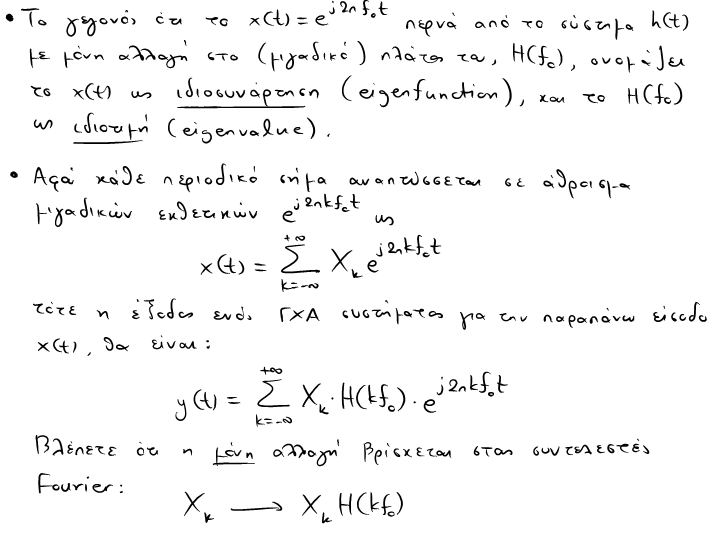 • Το γεγονός ότι το x(t) = e^{j2πf₀t} περνά από το σύστημα h(t)
με μόνη αλλαγή στο (μιγαδικό) πλάτος του, H(f₀), ονομάζει
το x(t) ως ιδιοσυνάρτηση (eigenfunction), και το H(f₀)
ως ιδιοτιμή (eigenvalue).
• Αφού κάθε περιοδικό σήμα αναπτύσσεται σε άθροισμα
μιγαδικών εκθετικών e^{j2πkf₀t} ως
x(t) = Σ_{k=-∞}^{+∞} X_k e^{j2πkf₀t}
τότε η έξοδος ενός ΓΧΑ συστήματος για την παραπάνω είσοδο
x(t), θα είναι:
y(t) = Σ_{k=-∞}^{+∞} X_k · H(kf₀) · e^{j2πkf₀t}
Βλέπετε ότι η μόνη αλλαγή βρίσκεται στους συντελεστές
Fourier:
X_k ⟶ X_k H(kf₀)